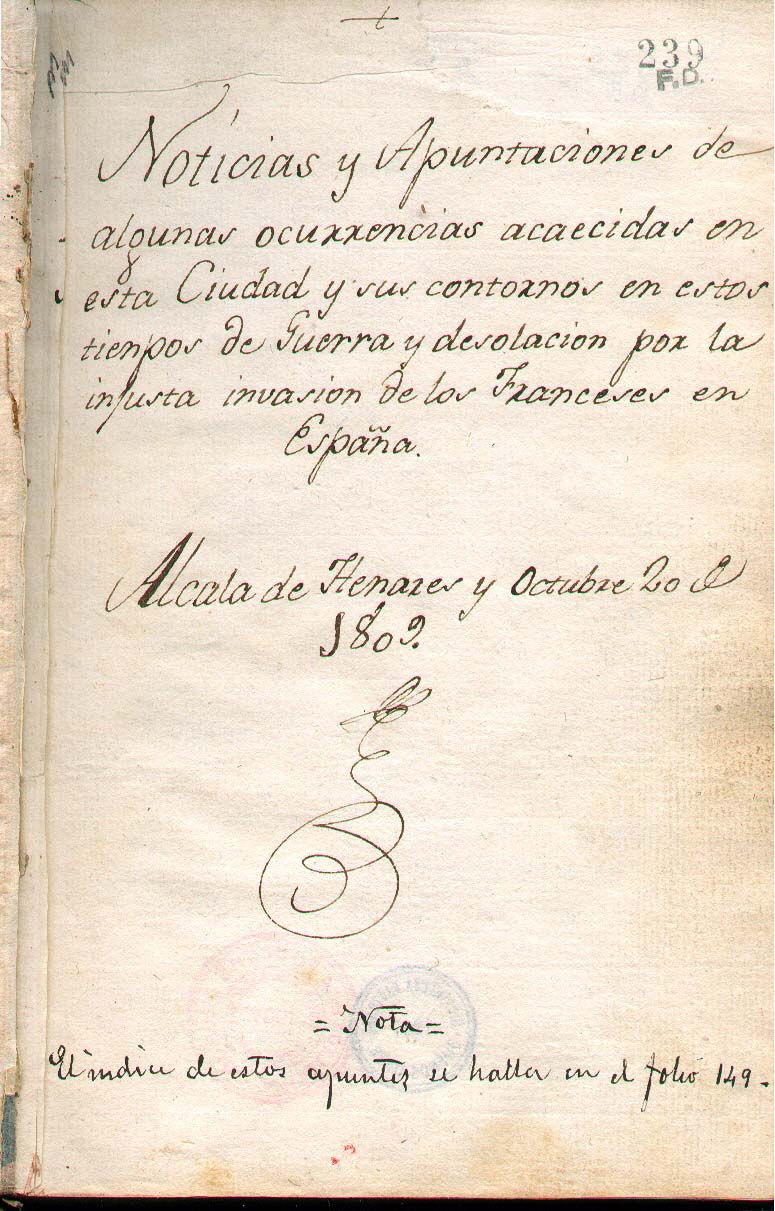 239
F.D.
Noticias y Apuntaciones de
algunas ocurrencias acaecidas en
esta Ciudad y sus contornos en estos
tienpos de Guerra y desolacion por la
injusta invasion de los Franceses en
España.
Alcala de Henares y Octubre 20 de
1809.
= Nota =
El indice de estos apuntes se halla en el folio 149.